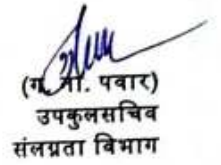 (ग. ना. पवार)
उपकुलसचिव
संलग्नता विभाग